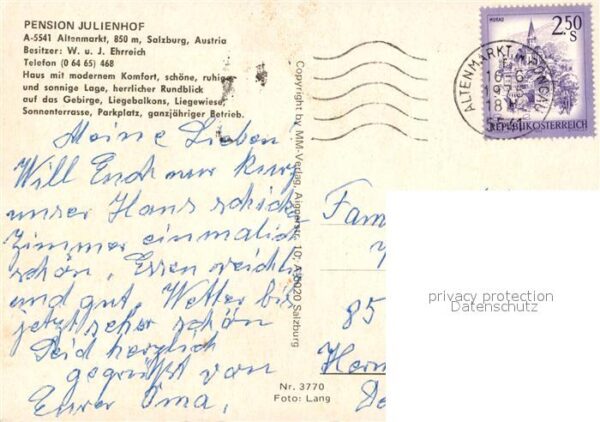 PENSION JULIENHOF
A-5541 Altenmarkt, 850 m, Salzburg, Austria
Besitzer: W. u. J. Ehrreich
Telefon (0 64 65) 468
Haus mit modernem Komfort, schöne, ruhige
und sonnige Lage, herrlicher Rundblick
auf das Gebirge, Liegebalkons, Liegewiese,
Sonnenterrasse, Parkplatz, ganzjähriger Betrieb.
Meine Lieben!
Will Euch nur kurz
unser Haus schicken
Zimmer einmalich
schön, Essen reichlich
und gut, Wetter bis
jetzt sehr schön
Seid herzlich
gegrüßt von
Eurer Oma,
Copyright by MM-Verlag, Aignerstr. 10, A-5020 Salzburg
MURAU
2.50
S
REPUBLIK ÖSTERREICH
ALTENMARKT
5541
Fam
85
privacy protection
Datenschutz
Nr. 3770
Foto: Lang